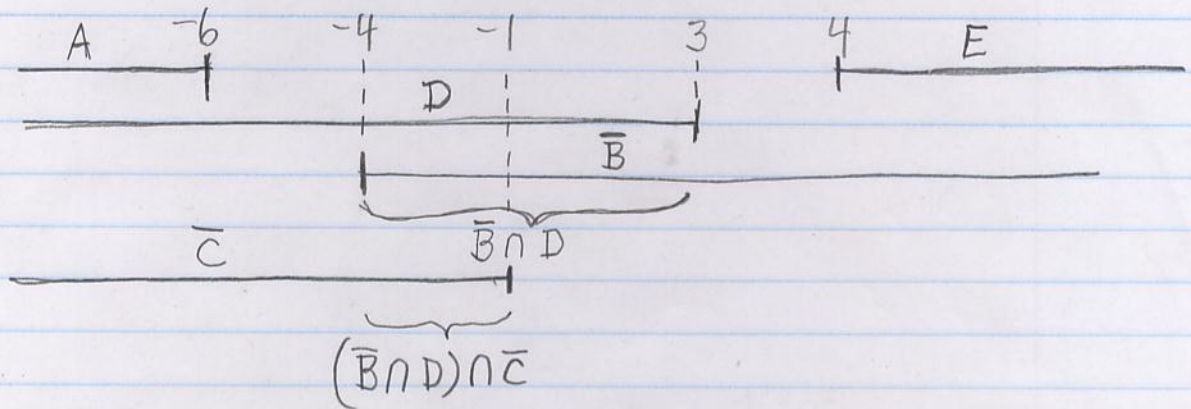 A -6 -4 -1 3 4 E
D
B̅
C̅ B̅∩D
(B̅∩D)∩C̅